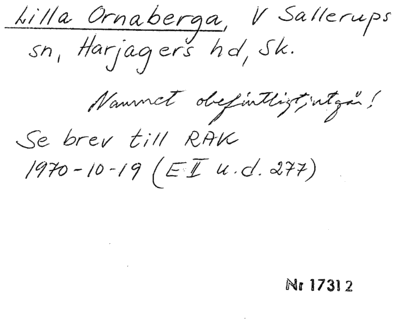 Lilla Ornaberga, V Sallerups
sn, Harjagers hd, Sk.
Namnet obefintligt, utgår!
Se brev till RAK
1970-10-19 (E II u.d. 277)
Nr 17312